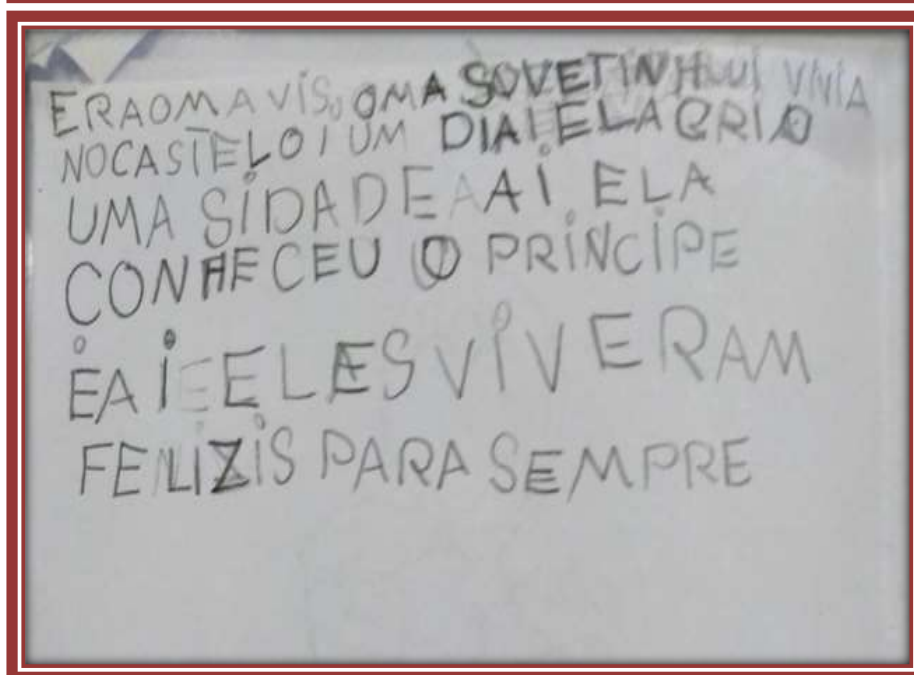 ERAOMAVÍS OMA SOVETINHUI VIVIA
NOCASTELO I UM DIAI ELA CRIO
UMA SIDADE AAI ELA
CONHECEU O PRÍNCIPE
EAI EELES VIVERAM
FELIZIS PARA SEMPRE